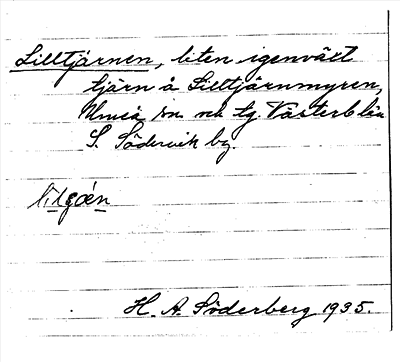 Lilltjärnen, liten igenväxt
tjärn å Lilltjärnmyren,
Umeå sn. och tg. Västerb. län
S. Södervik by.
H. A. Söderberg 1935.